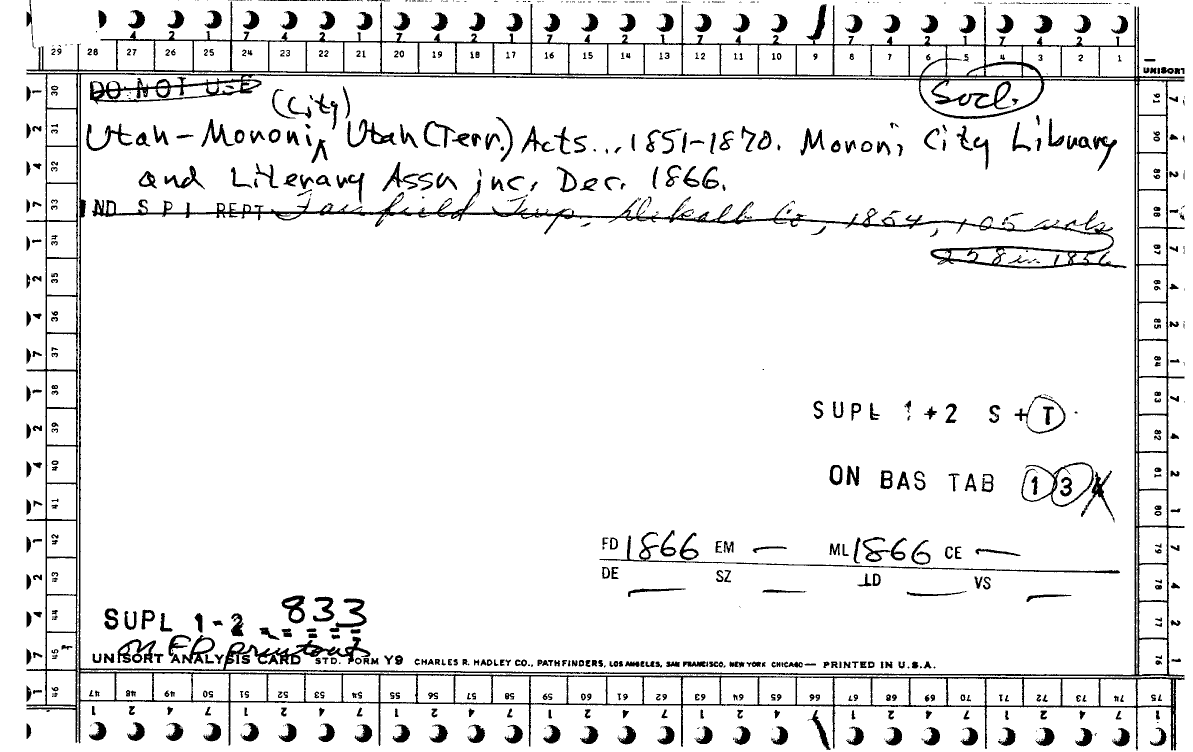 7 4 2 1 7 4 2 1 7 4 2 1 7 4 2 1 7 4 2 1 7 4 2 1
29 28 27 26 25 24 23 22 21 20 19 18 17 16 15 14 13 12 11 10 9 8 7 6 5 4 3 2 1
UNISORT
DO NOT USE
Socl.
(City)
Utah-Moroni, Utah (Terr.) Acts... 1851-1870. Moroni City Library
and Literary Assn inc. Dec. 1866.
IND SPI REPT Fairfield Twp, Dekalb Co, 1854, 105 vols
228 in 1856
SUPL 1+2 S+T
ON BAS TAB 1 3 4
FD 1866 EM — ML 1866 CE —
DE — SZ — TD — VS —
SUPL 1-2 833
on FD printout
UNISORT ANALYSIS CARD STD. FORM Y9 CHARLES R. HADLEY CO., PATHFINDERS, LOS ANGELES, SAN FRANCISCO, NEW YORK CHICAGO — PRINTED IN U.S.A.
30 31 32 33 34 35 36 37 38 39 40 41 42 43 44 45 46
91 90 89 88 87 86 85 84 83 82 81 80 79 78 77 76 75
47 48 49 50 51 52 53 54 55 56 57 58 59 60 61 62 63 64 65 66 67 68 69 70 71 72 73 74